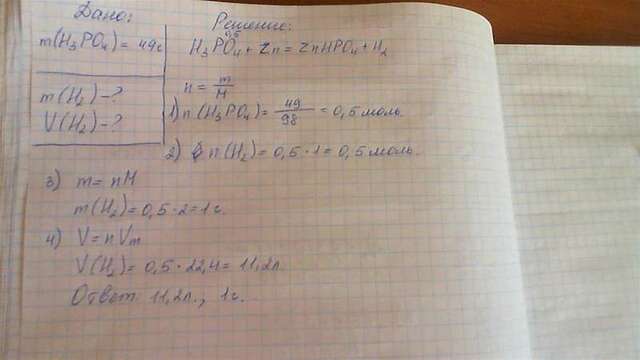 Дано:
m(H3PO4) = 49г
m(H2) - ?
V(H2) - ?
Решение:
0,5
H3PO4 + Zn = ZnHPO4 + H2
n = m/M
1) n(H3PO4) = 49/98 = 0,5 моль.
2) n(H2) = 0,5 · 1 = 0,5 моль.
3) m = nM
m(H2) = 0,5 · 2 = 1 г.
4) V = nVm
V(H2) = 0,5 · 22,4 = 11,2л.
Ответ: 11,2л., 1г.